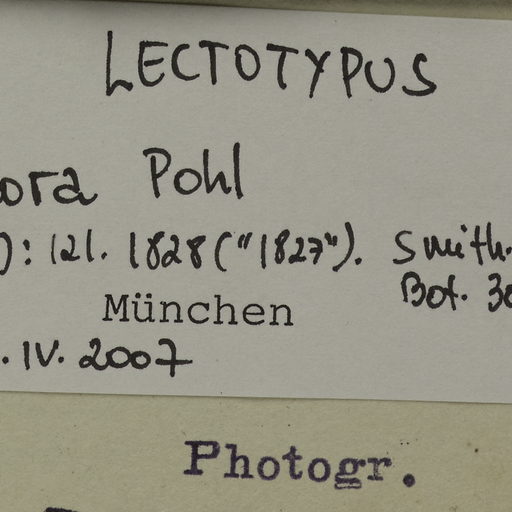 LECTOTYPUS
ora Pohl
): 121. 1828 ("1827"). Smith.
Bot. 30
München
. IV. 2007
Photogr.